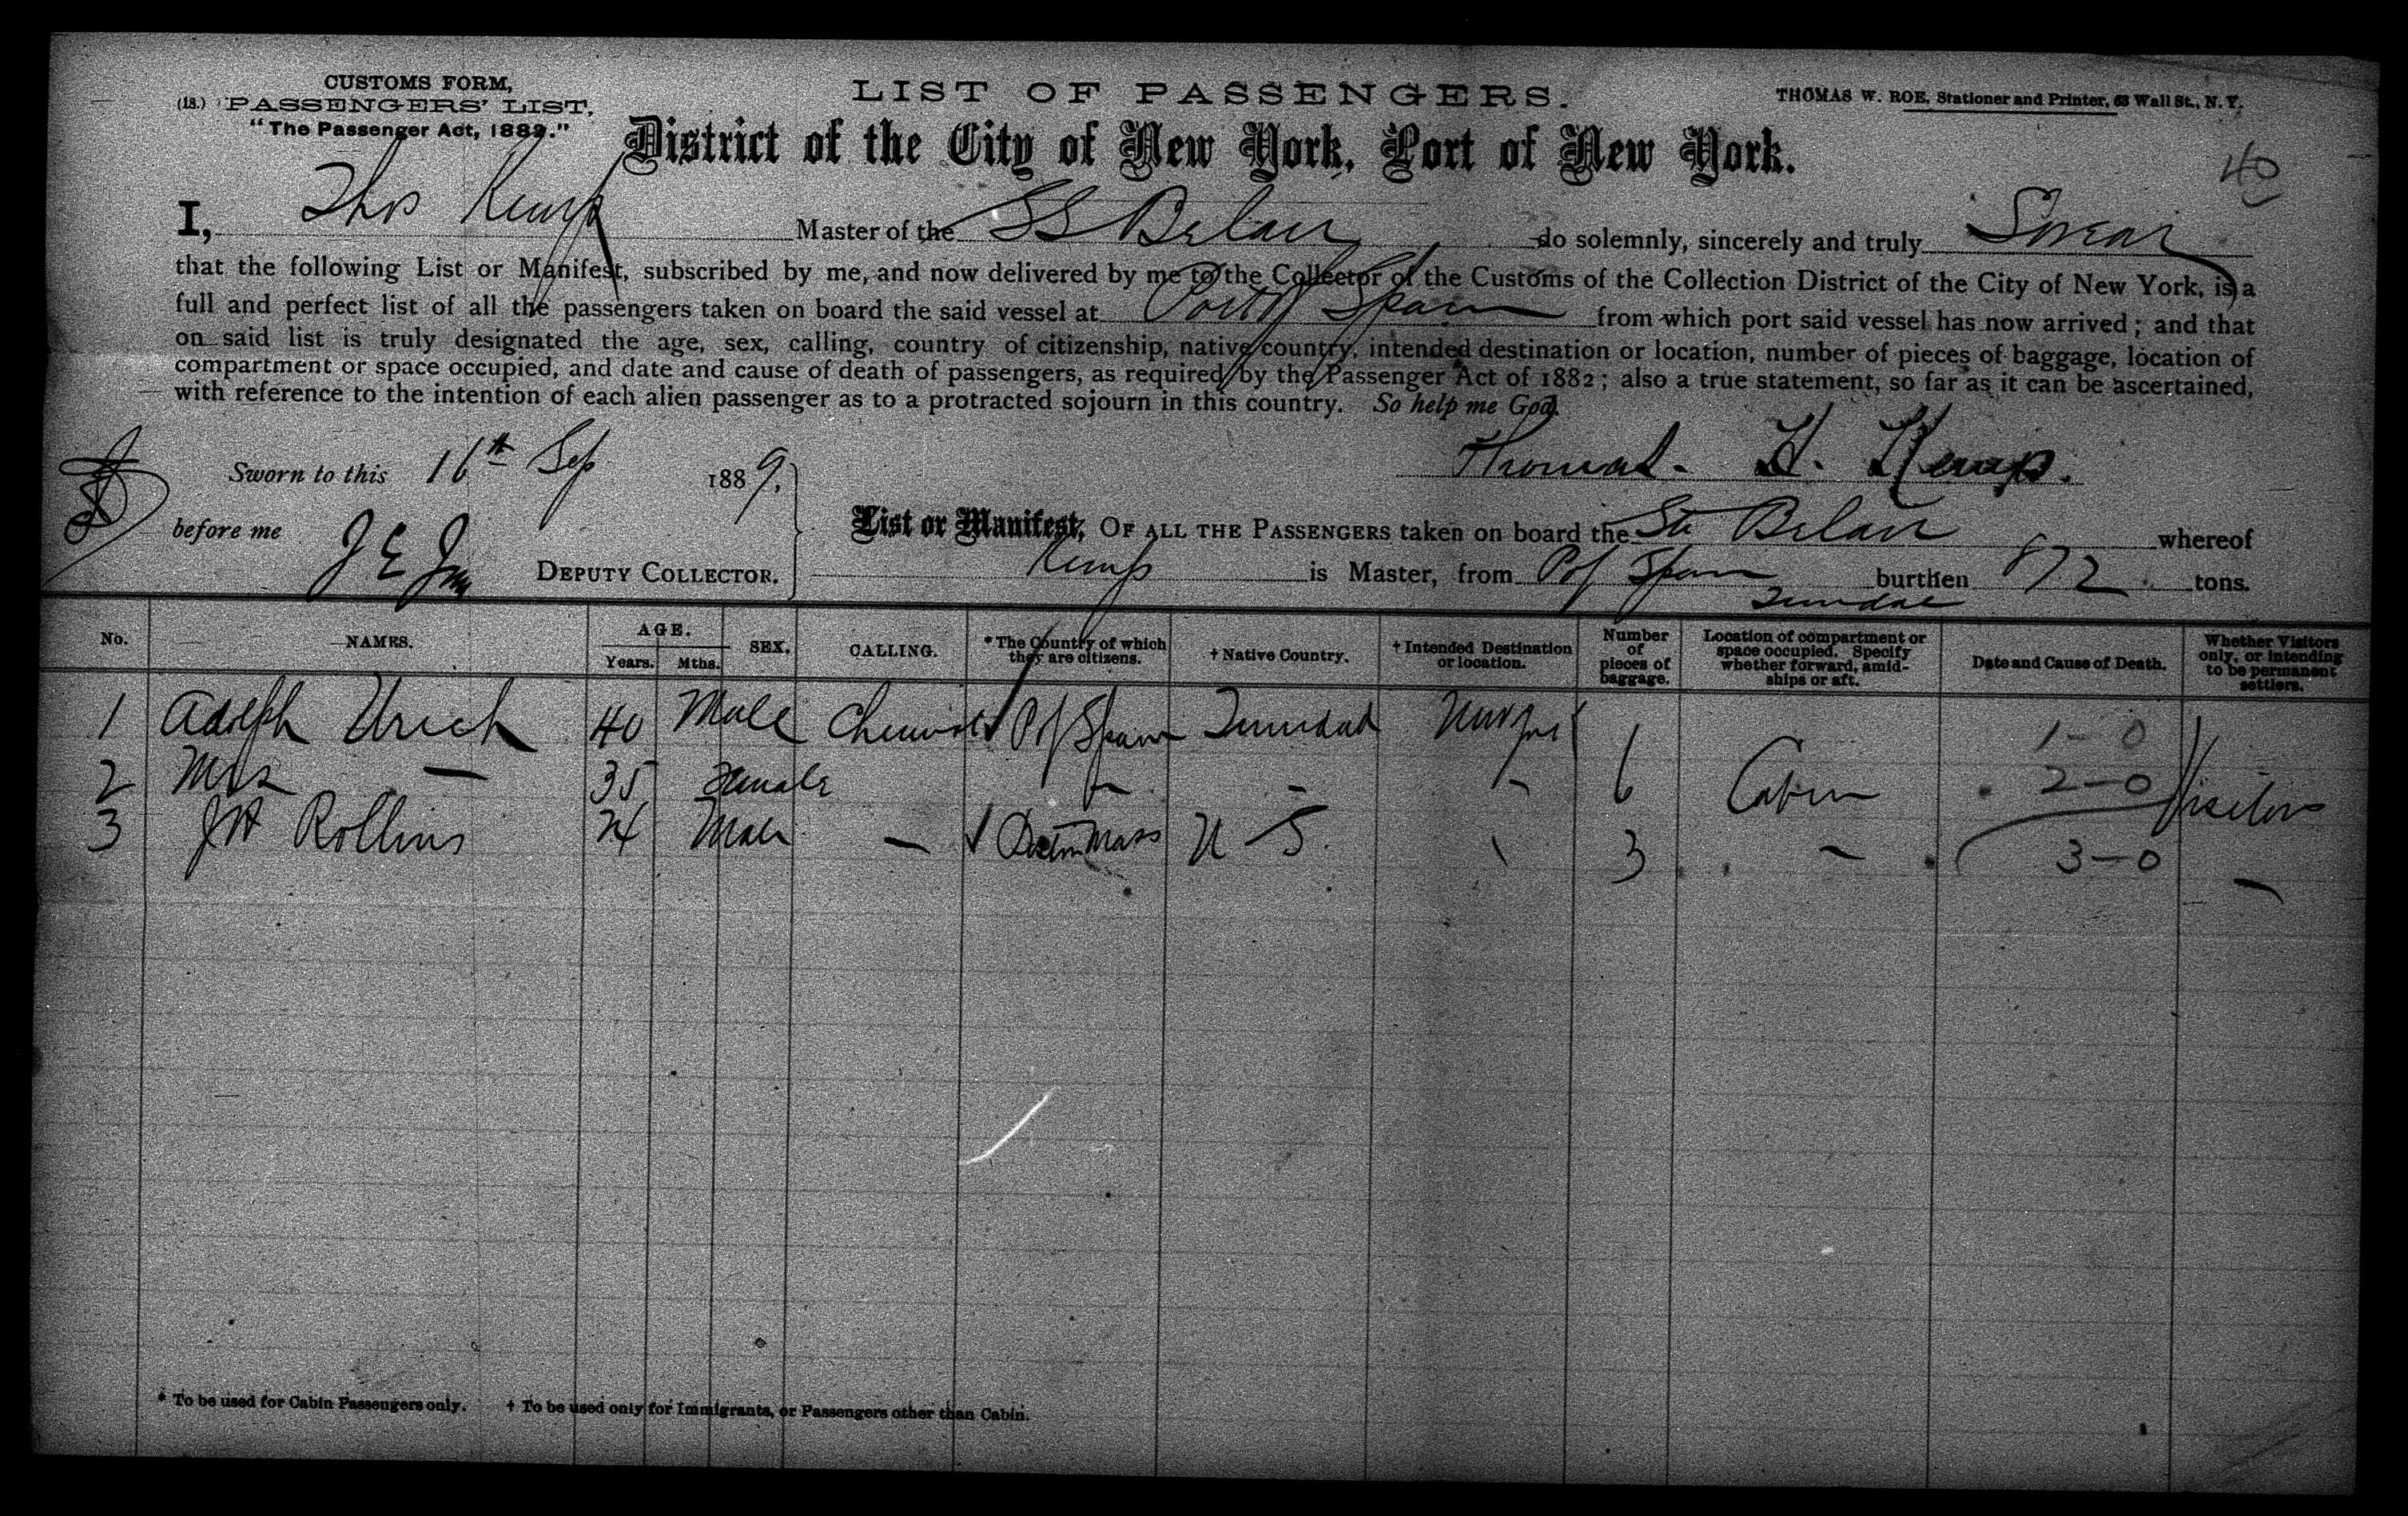 CUSTOMS FORM,
(18.) PASSENGERS' LIST,
"The Passenger Act, 1882."
LIST OF PASSENGERS.
THOMAS W. ROE, Stationer and Printer, 63 Wall St., N. Y.
District of the City of New York, Port of New York.
40
I, Thos Kemp Master of the SS Belair do solemnly, sincerely and truly Swear
that the following List or Manifest, subscribed by me, and now delivered by me to the Collector of the Customs of the Collection District of the City of New York, is a
full and perfect list of all the passengers taken on board the said vessel at Port of Spain from which port said vessel has now arrived; and that
on said list is truly designated the age, sex, calling, country of citizenship, native country, intended destination or location, number of pieces of baggage, location of
compartment or space occupied, and date and cause of death of passengers, as required by the Passenger Act of 1882; also a true statement, so far as it can be ascertained,
with reference to the intention of each alien passenger as to a protracted sojourn in this country. So help me God.
Sworn to this 16th Sep 1889,
Thomas. H. Kemp.
before me
DEPUTY COLLECTOR.
List or Manifest, OF ALL THE PASSENGERS taken on board the Str Belair whereof
Kemp is Master, from Pof Spain burthen 872 tons.
Trinidad
No. NAMES. AGE. Years. Mths. SEX. CALLING. * The Country of which they are citizens. † Native Country. † Intended Destination or location. Number of pieces of baggage. Location of compartment or space occupied. Specify whether forward, amidships or aft. Date and Cause of Death. Whether Visitors only, or intending to be permanent settlers.
1 Adolph Urich 40 Male Pof Spain Trinidad 1-0
2 Mrs — 35 Female - - - 6 Cabin 2-0 Visitors
3 JH Rollins 24 Male — Boston Mass U S. 3 - 3-0 -
* To be used for Cabin Passengers only. † To be used only for Immigrants, or Passengers other than Cabin.